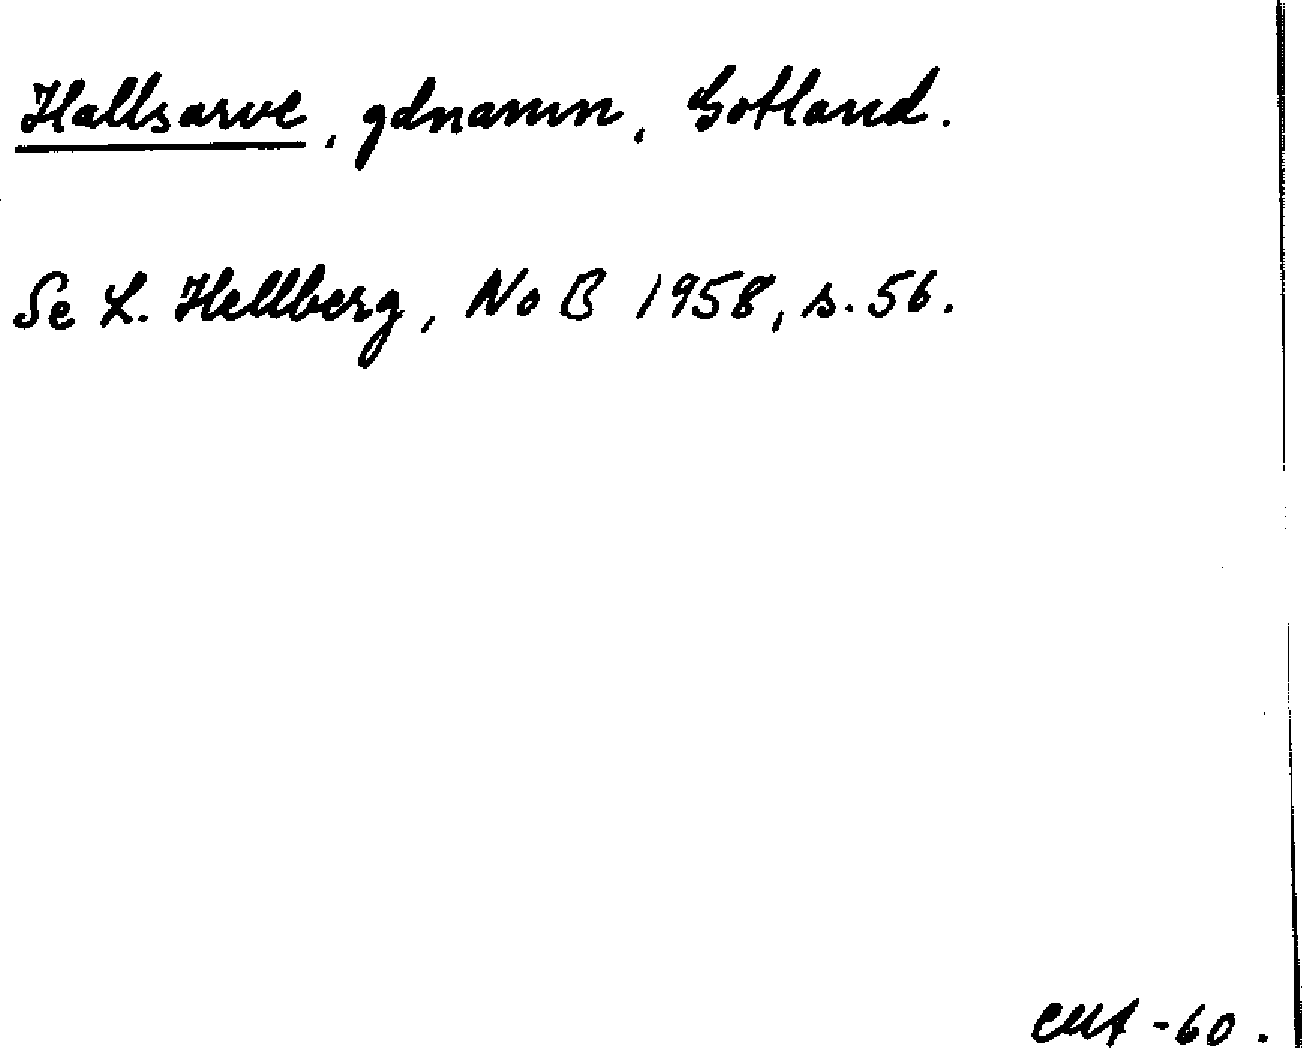 Hallsarve, gdnamn, Gotland.
Se L. Hellberg, NoB 1958, s. 56.
-60.